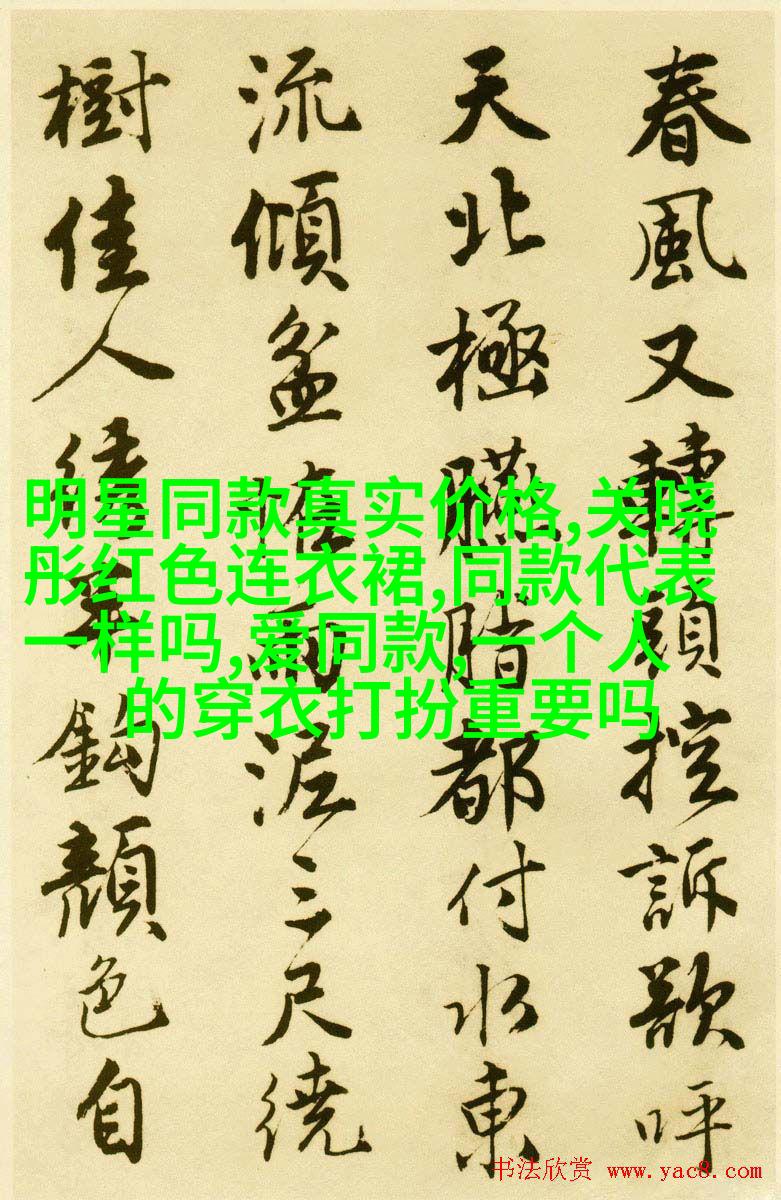 春風又轉頭控訴欲呼
天北極臙脂都付水東
流傾盆怪雨泥三尺繞
樹佳人繡半鈎顏色自
明星同款真实价格,关晓
彤红色连衣裙,同款代表
一样吗,爱同款,一个人
的穿衣打扮重要吗
书法欣赏 www.yac8.com